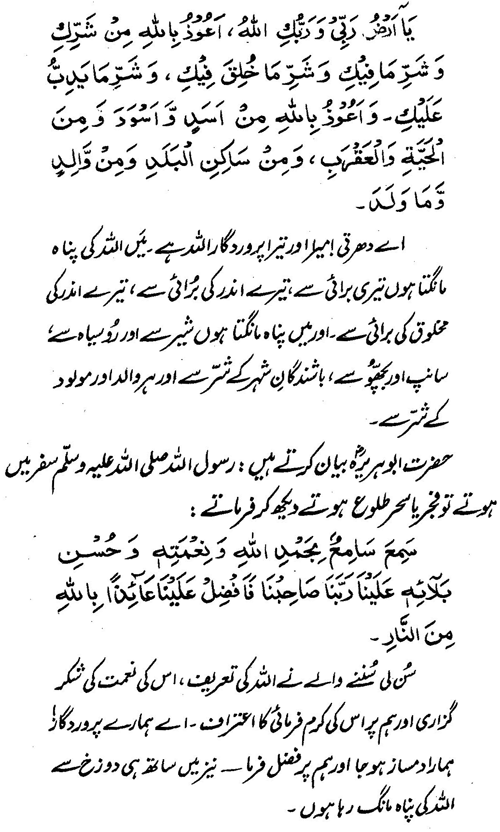 يَا اَرْضُ رَبِّيْ وَرَبُّكِ اللهُ، اَعُوْذُ بِاللهِ مِنْ شَرِّكِ
وَشَرِّ مَا فِيْكِ وَشَرِّ مَا خُلِقَ فِيْكِ، وَشَرِّ مَا يَدِبُّ
عَلَيْكِ۔ وَاَعُوْذُ بِاللهِ مِنْ اَسَدٍ وَّاَسْوَدَ وَمِنَ
الْحَيَّةِ وَالْعَقْرَبِ، وَمِنْ سَاكِنِ الْبَلَدِ وَمِنْ وَّالِدٍ
وَّمَا وَلَدَ۔
اے دھرتی! میرا اور تیرا پروردگار اللہ ہے۔ میَں اللہ کی پناہ
مانگتا ہوں تیری برائی سے، تیرے اندر کی بُرائی سے، تیرے اندر کی
مخلوق کی برائی سے۔ اور میں پناہ مانگتا ہوں شیر سے اور رُوسیاہ سے،
سانپ اور بچھّو سے، باشندگانِ شہر کے شرّ سے اور ہر والد اور مولود
کے شرّ سے۔
حضرت ابوہریرہؓ بیان کرتے ہیں: رسول اللہ صلی اللہ علیہ وسلّم سفر میں
ہوتے تو فجر یا سحر طلوع ہوتے دیکھ کر فرماتے:
سَمِعَ سَامِعٌ بِحَمْدِ اللهِ وَنِعْمَتِهٖ وَحُسْنِ
بَلَائِهٖ عَلَيْنَا رَبَّنَا صَاحِبْنَا فَاَفْضِلْ عَلَيْنَا عَائِذًا بِاللهِ
مِنَ النَّارِ۔
سُن لی سُننے والے نے اللہ کی تعریف، اس کی نعمت کی شکر
گزاری اور ہم پر اس کی کرم فرمائی کا اعتراف۔ اے ہمارے پروردگار!
ہمارا دمساز ہو جا اور ہم پر فضل فرما — نیز میں ساتھ ہی دوزخ سے
اللہ کی پناہ مانگ رہا ہوں۔